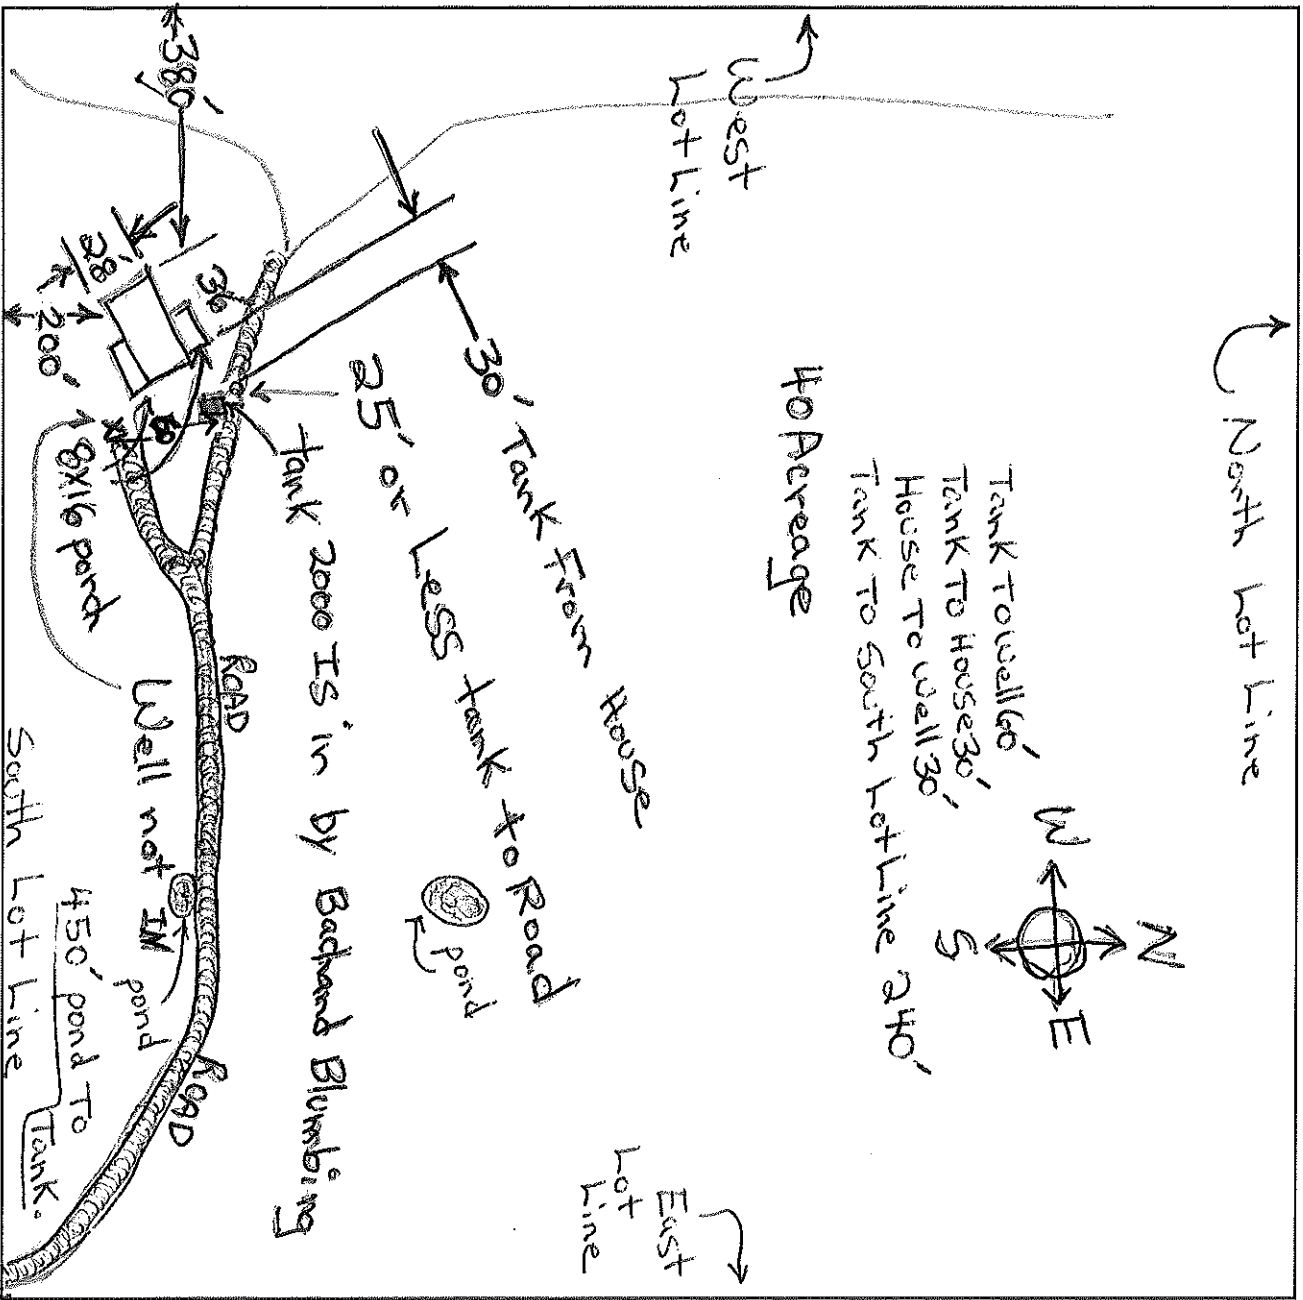 North Lot Line
N
W
E
S
Tank To well 60'
Tank To House 30'
House To well 30'
Tank To South Lot Line 240'
40 Acreage
West
Lot Line
East
Lot
Line
30' Tank From House
25' or Less tank to Road
pond
tank 2000 IS in by Bachand Blumbing
380'
28'
36'
200'
60
8X16 porch
ROAD
ROAD
Well not IN
pond
450' pond To
Tank.
South Lot Line